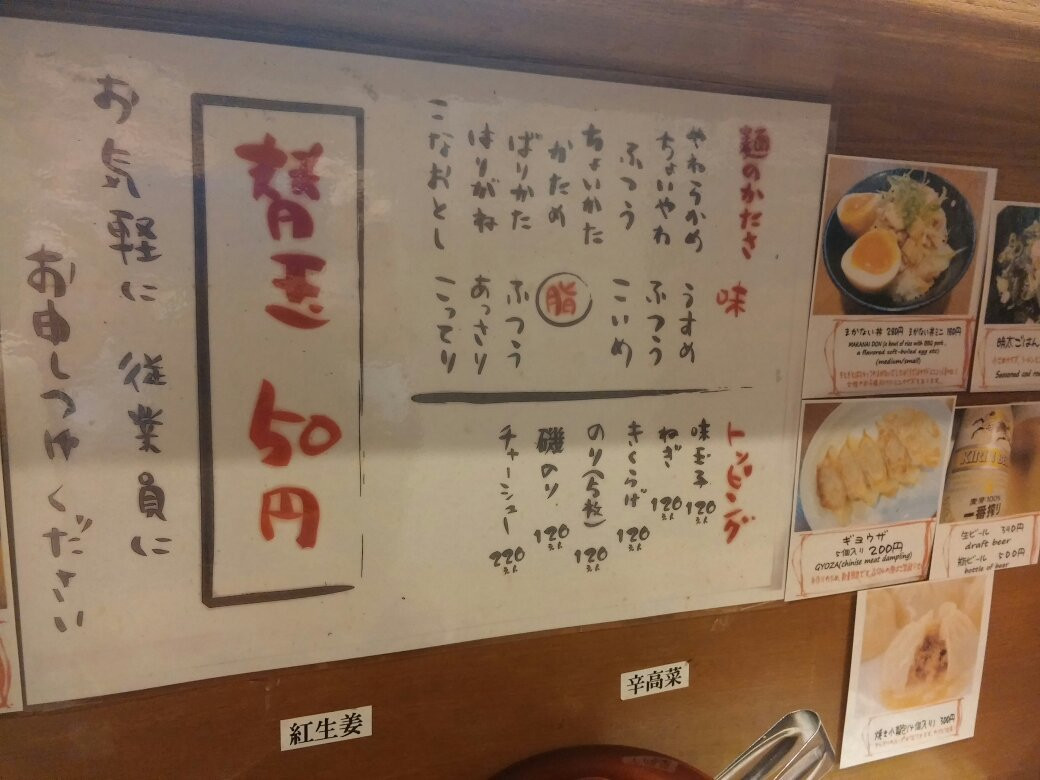 麺のかたさ
やわらかめ
ちょいやわ
ふつう
ちょいかた
かため
ばりかた
はりがね
こなおとし
味
うすめ
ふつう
こいめ
脂
ふつう
あっさり
こってり
トッピング
味玉子 120えん
ねぎ 120えん
きくらげ 120えん
のり(5枚) 120えん
磯のり 120えん
チャーシュー 220えん
替玉 50円
お気軽に 従業員に
お申しつけください
まかない丼 280円 まかない丼ミニ 180円
MAKANAI DON (a bowl of rice with BBQ pork,
a flavored soft-boiled egg etc)
(medium/small)
明太ごはん
ギョウザ
5個入り 200円
GYOZA(chinise meat dampling)
KIRIN
麦芽100%
一番搾り
生ビール 340円
draft beer
瓶ビール 500円
bottle of beer
300円
辛高菜
紅生姜